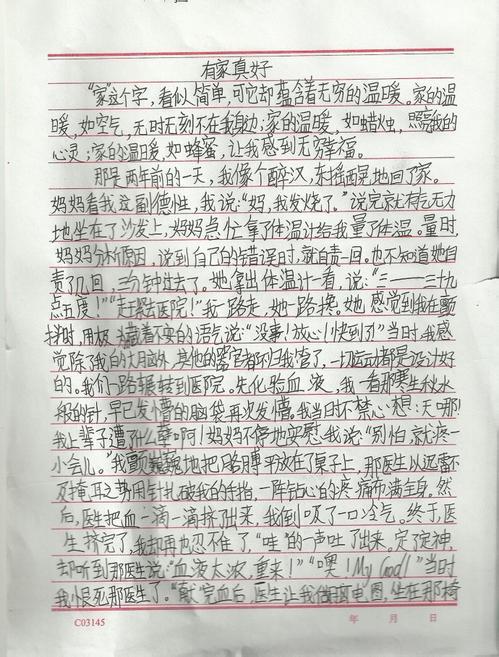 有家真好
“家”这个字，看似简单，可它却蕴含着无穷的温暖。家的温
暖，如空气，无时无刻不在我身边；家的温暖，如蜡烛，照亮我的
心灵；家的温暖，如蜂蜜，让我感到无穷幸福。
那是两年前的一天，我像个醉汉，东摇西晃地回了家。
妈妈看我这副德性，我说：“妈，我发烧了。”说完就有气无力
地坐在了沙发上，妈妈急忙拿了体温计给我量了体温。量时，
妈妈分析原因，说到自己的错误时，就自责一回。也不知道她自
责了几回，三分钟过去了。她拿出体温计一看，说：“三——三十九
点五度！”“赶紧去医院！”我一路走，她一路搀。她感觉到我在颤
抖时，用极力藏着不安的语气说：“没事！放心！快到了！”当时我感
觉除了我的大脑外，其他的器官都不归我管了，一切运动都是设计好
的。我们一路辗转到医院。先化验血液，我一看那寒生秋水
般的针，早已发懵的脑袋再次发懵。我当时不禁心想：天哪！
我上辈子遭了什么孽啊！妈妈不停地安慰我说：“别怕就疼一
小会儿。”我颤巍巍地把胳膊平放在了桌子上，那医生以迅雷不
及掩耳之势用针扎破我的手指，一阵钻心的疼痛布满全身。然
后，医生把血一滴一滴挤了出来，我倒吸了一口冷气。终于，医
生挤完了，我却再也忍不住了，“哇”的一声吐了出来。定了定神，
却听到那医生说：“血液太浓，重来！”“噢！My God！”当时
我恨死那医生了。“献”完血后，医生让我做脑电图，坐在那椅
C03145
年 月 日